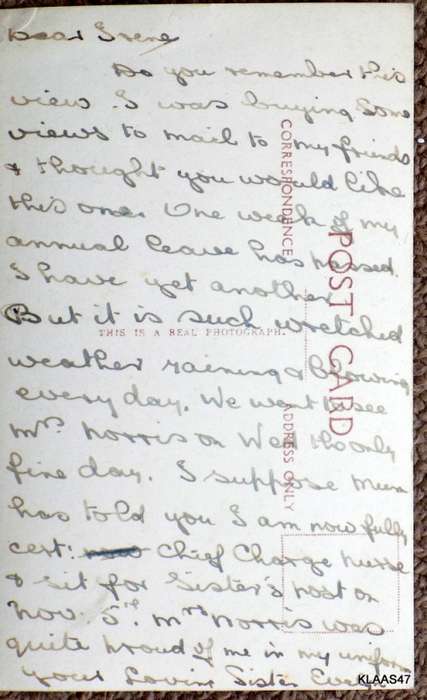 Dear Irene
Do you remember this
view. I was buying some
views to mail to my friends
& thought you would like
this one. One week of my
annual leave has passed.
I have yet another
But it is such wretched
weather raining & blowing
every day. We went to see
Mrs Norris on Wed the only
fine day. I suppose Mum
has told you I am now fully
cert: Chief Charge nurse
& sit for Sister's post on
Nov. 5th. Mrs Norris was
quite proud of me in my uniform
Your Loving Sister
CORRESPONDENCE
POST CARD
THIS IS A REAL PHOTOGRAPH.
ADDRESS ONLY
KLAAS47